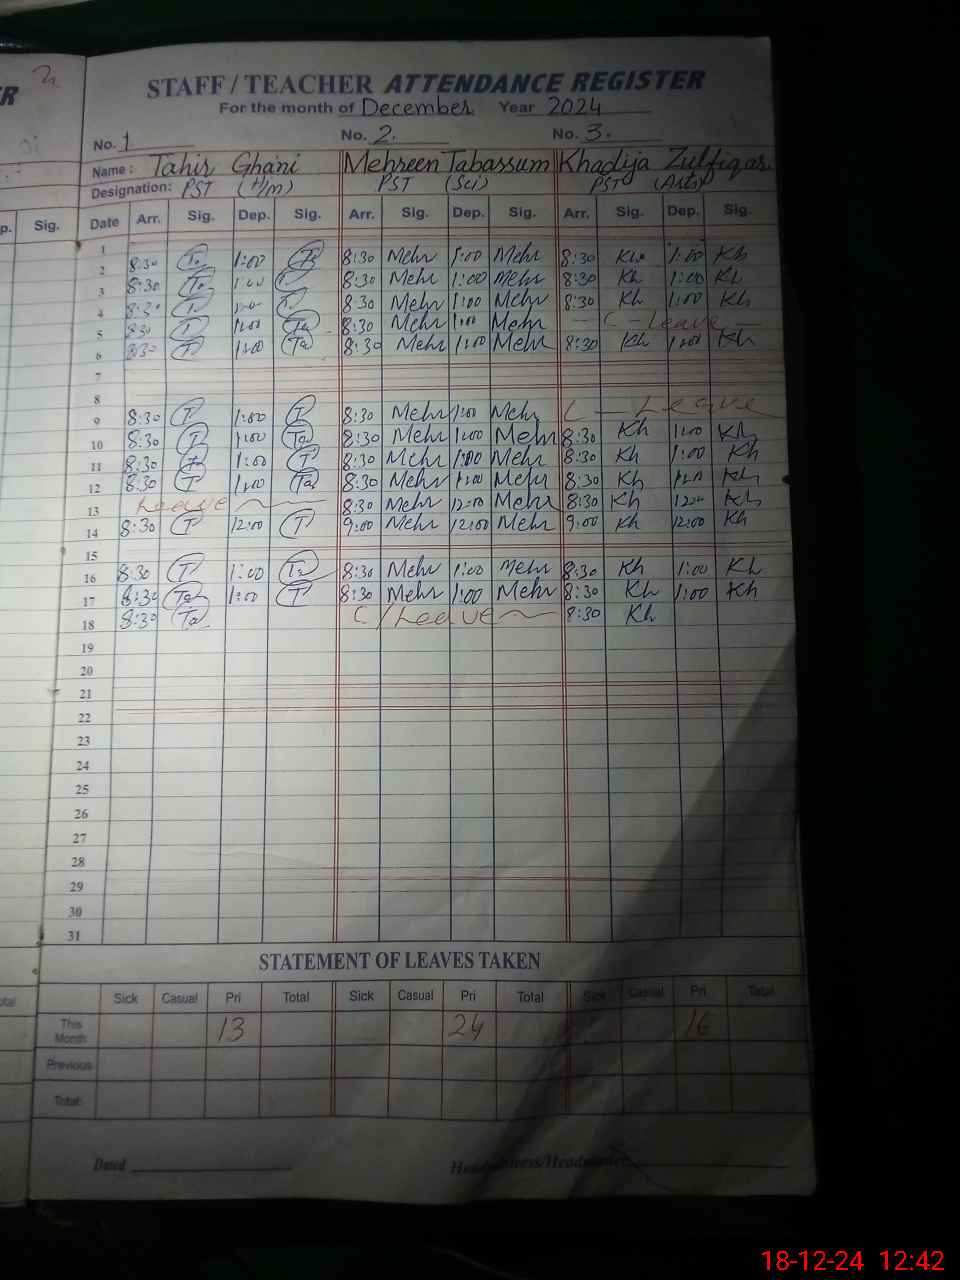 STAFF / TEACHER ATTENDANCE REGISTER
For the month of December Year 2024
No. 1 No. 2. No. 3.
Name: Tahir Ghani Mehreen Tabassum Khadija Zulfiqar
Designation: PST (H/m) PST (Sci) PST (Arts)
p. Sig. Date Arr. Sig. Dep. Sig. Arr. Sig. Dep. Sig. Arr. Sig. Dep. Sig.
1
2 8:30 Ta 1:00 Ta 8:30 Mehr 1:00 Mehr 8:30 Kh 1:00 Kh
3 8:30 Ta 1:00 T 8:30 Mehr 1:00 Mehr 8:30 Kh 1:00 Kh
4 8:30 T 1:00 T 8:30 Mehr 1:00 Mehr 8:30 Kh 1:00 Kh
5 8:30 T 1:00 Ta 8:30 Mehr 1:00 Mehr C - Leave
6 8:30 T 1:00 Ta 8:30 Mehr 1:00 Mehr 8:30 Kh 1:00 Kh
7
8
9 8:30 T 1:00 T 8:30 Mehr 1:00 Mehr C - Leave
10 8:30 T 1:00 Ta 8:30 Mehr 1:00 Mehr 8:30 Kh 1:00 Kh
11 8:30 T 1:00 T 8:30 Mehr 1:00 Mehr 8:30 Kh 1:00 Kh
12 8:30 T 1:00 Ta 8:30 Mehr 1:00 Mehr 8:30 Kh 1:00 Kh
13 Leave 8:30 Mehr 12:00 Mehr 8:30 Kh 12:00 Kh
14 8:30 T 12:00 T 9:00 Mehr 12:00 Mehr 9:00 Kh 12:00 Kh
15
16 8:30 T 1:00 Ta 8:30 Mehr 1:00 Mehr 8:30 Kh 1:00 Kh
17 8:30 Ta 1:00 T 8:30 Mehr 1:00 Mehr 8:30 Kh 1:00 Kh
18 8:30 Ta C/Leave 8:30 Kh
19
20
21
22
23
24
25
26
27
28
29
30
31
STATEMENT OF LEAVES TAKEN
Sick Casual Pri Total Sick Casual Pri Total Sick Casual Pri Total
This Month 13 24 16
Previous
Total:
Dated
Headmistress/Headmaster
18-12-24 12:42